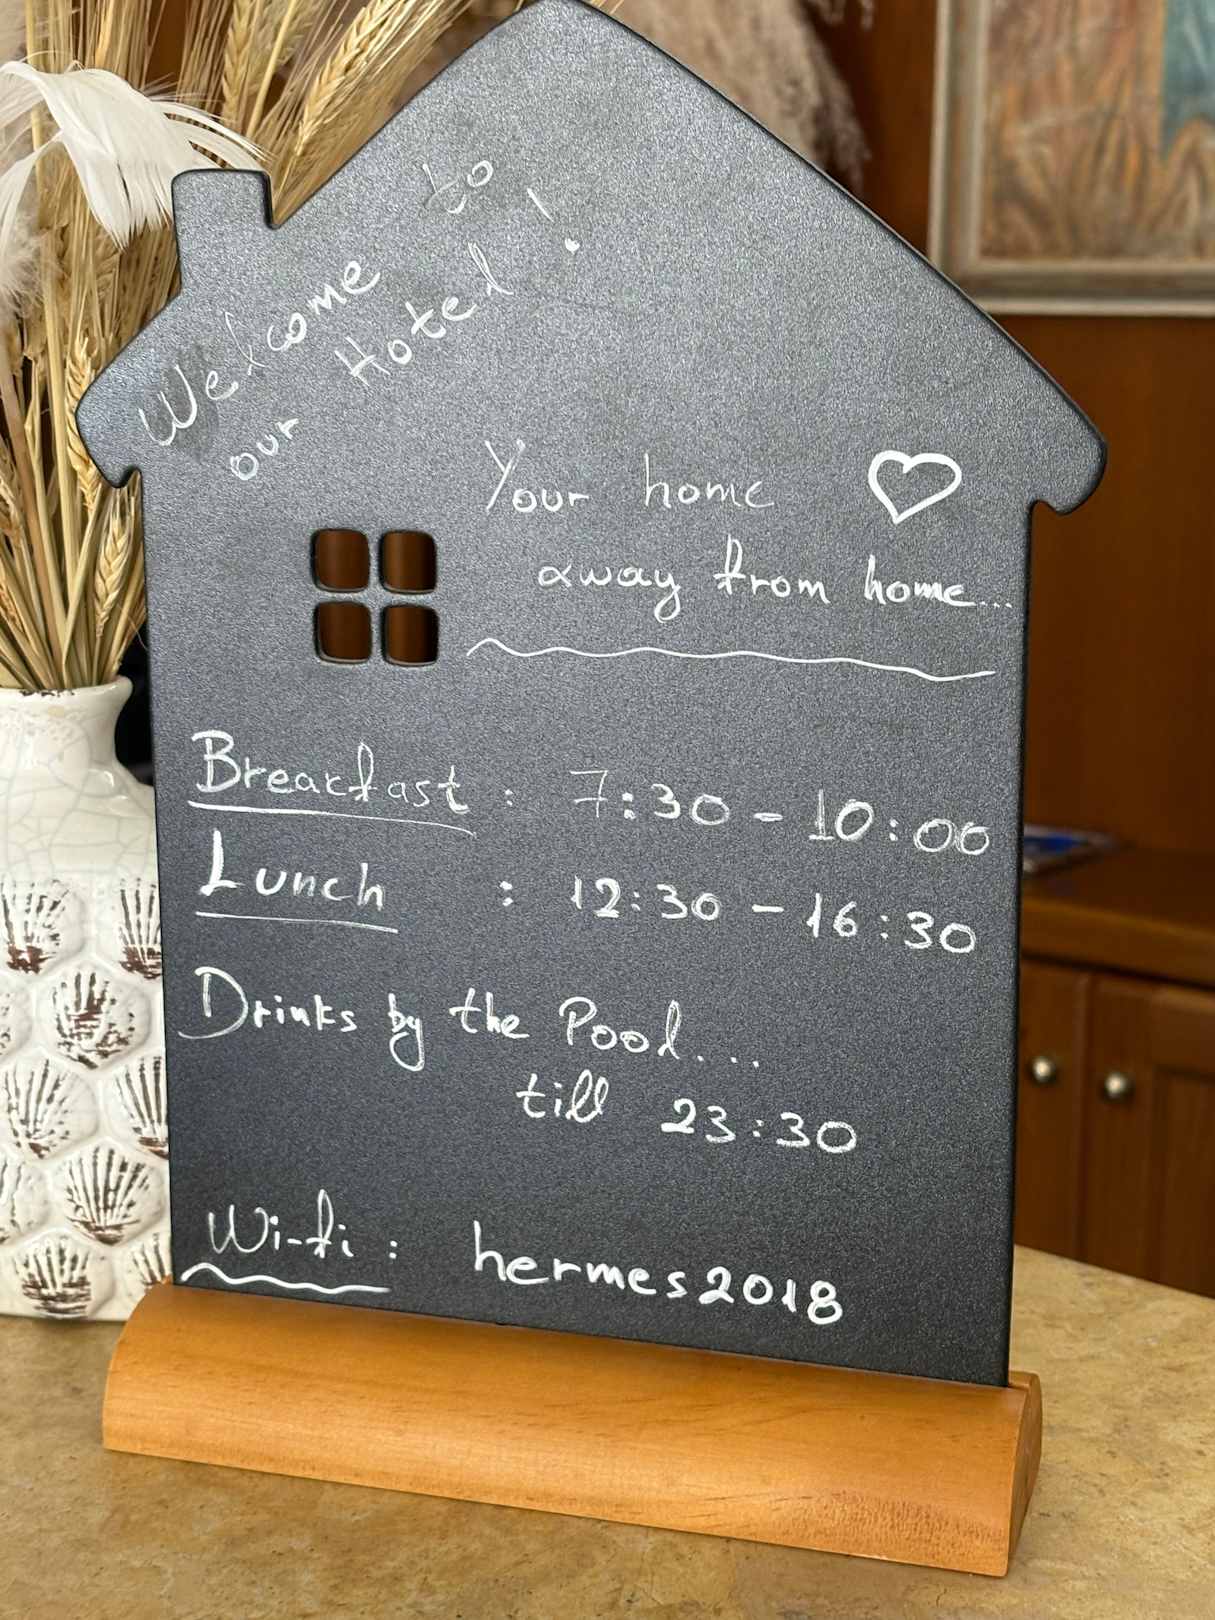 Welcome to
our Hotel!
Your home ♡
away from home...
Breakfast : 7:30 - 10:00
Lunch : 12:30 - 16:30
Drinks by the Pool...
till 23:30
Wi-fi : hermes2018